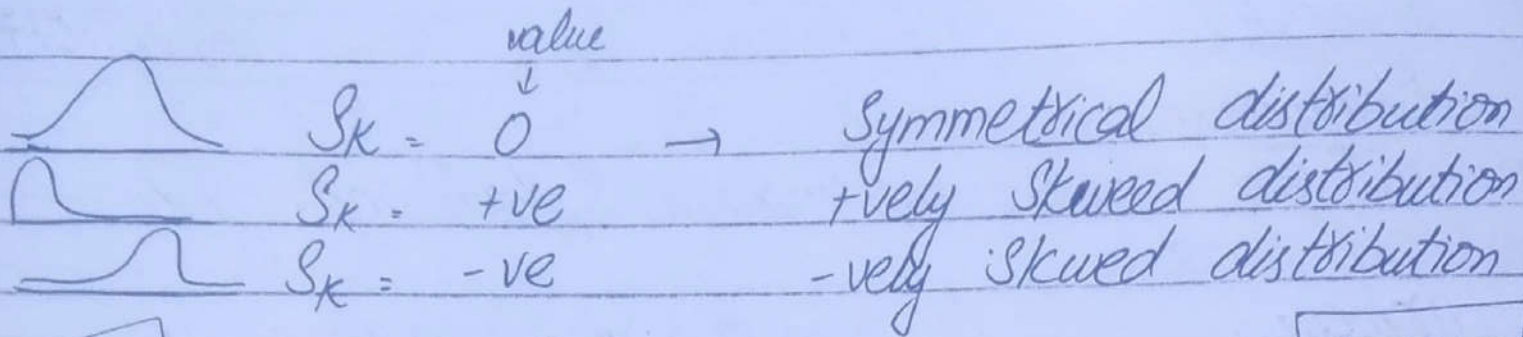 value
↓
Sk = 0 → Symmetrical distribution
Sk = +ve +vely Skweed distribution
Sk = -ve -vely Skwed distribution